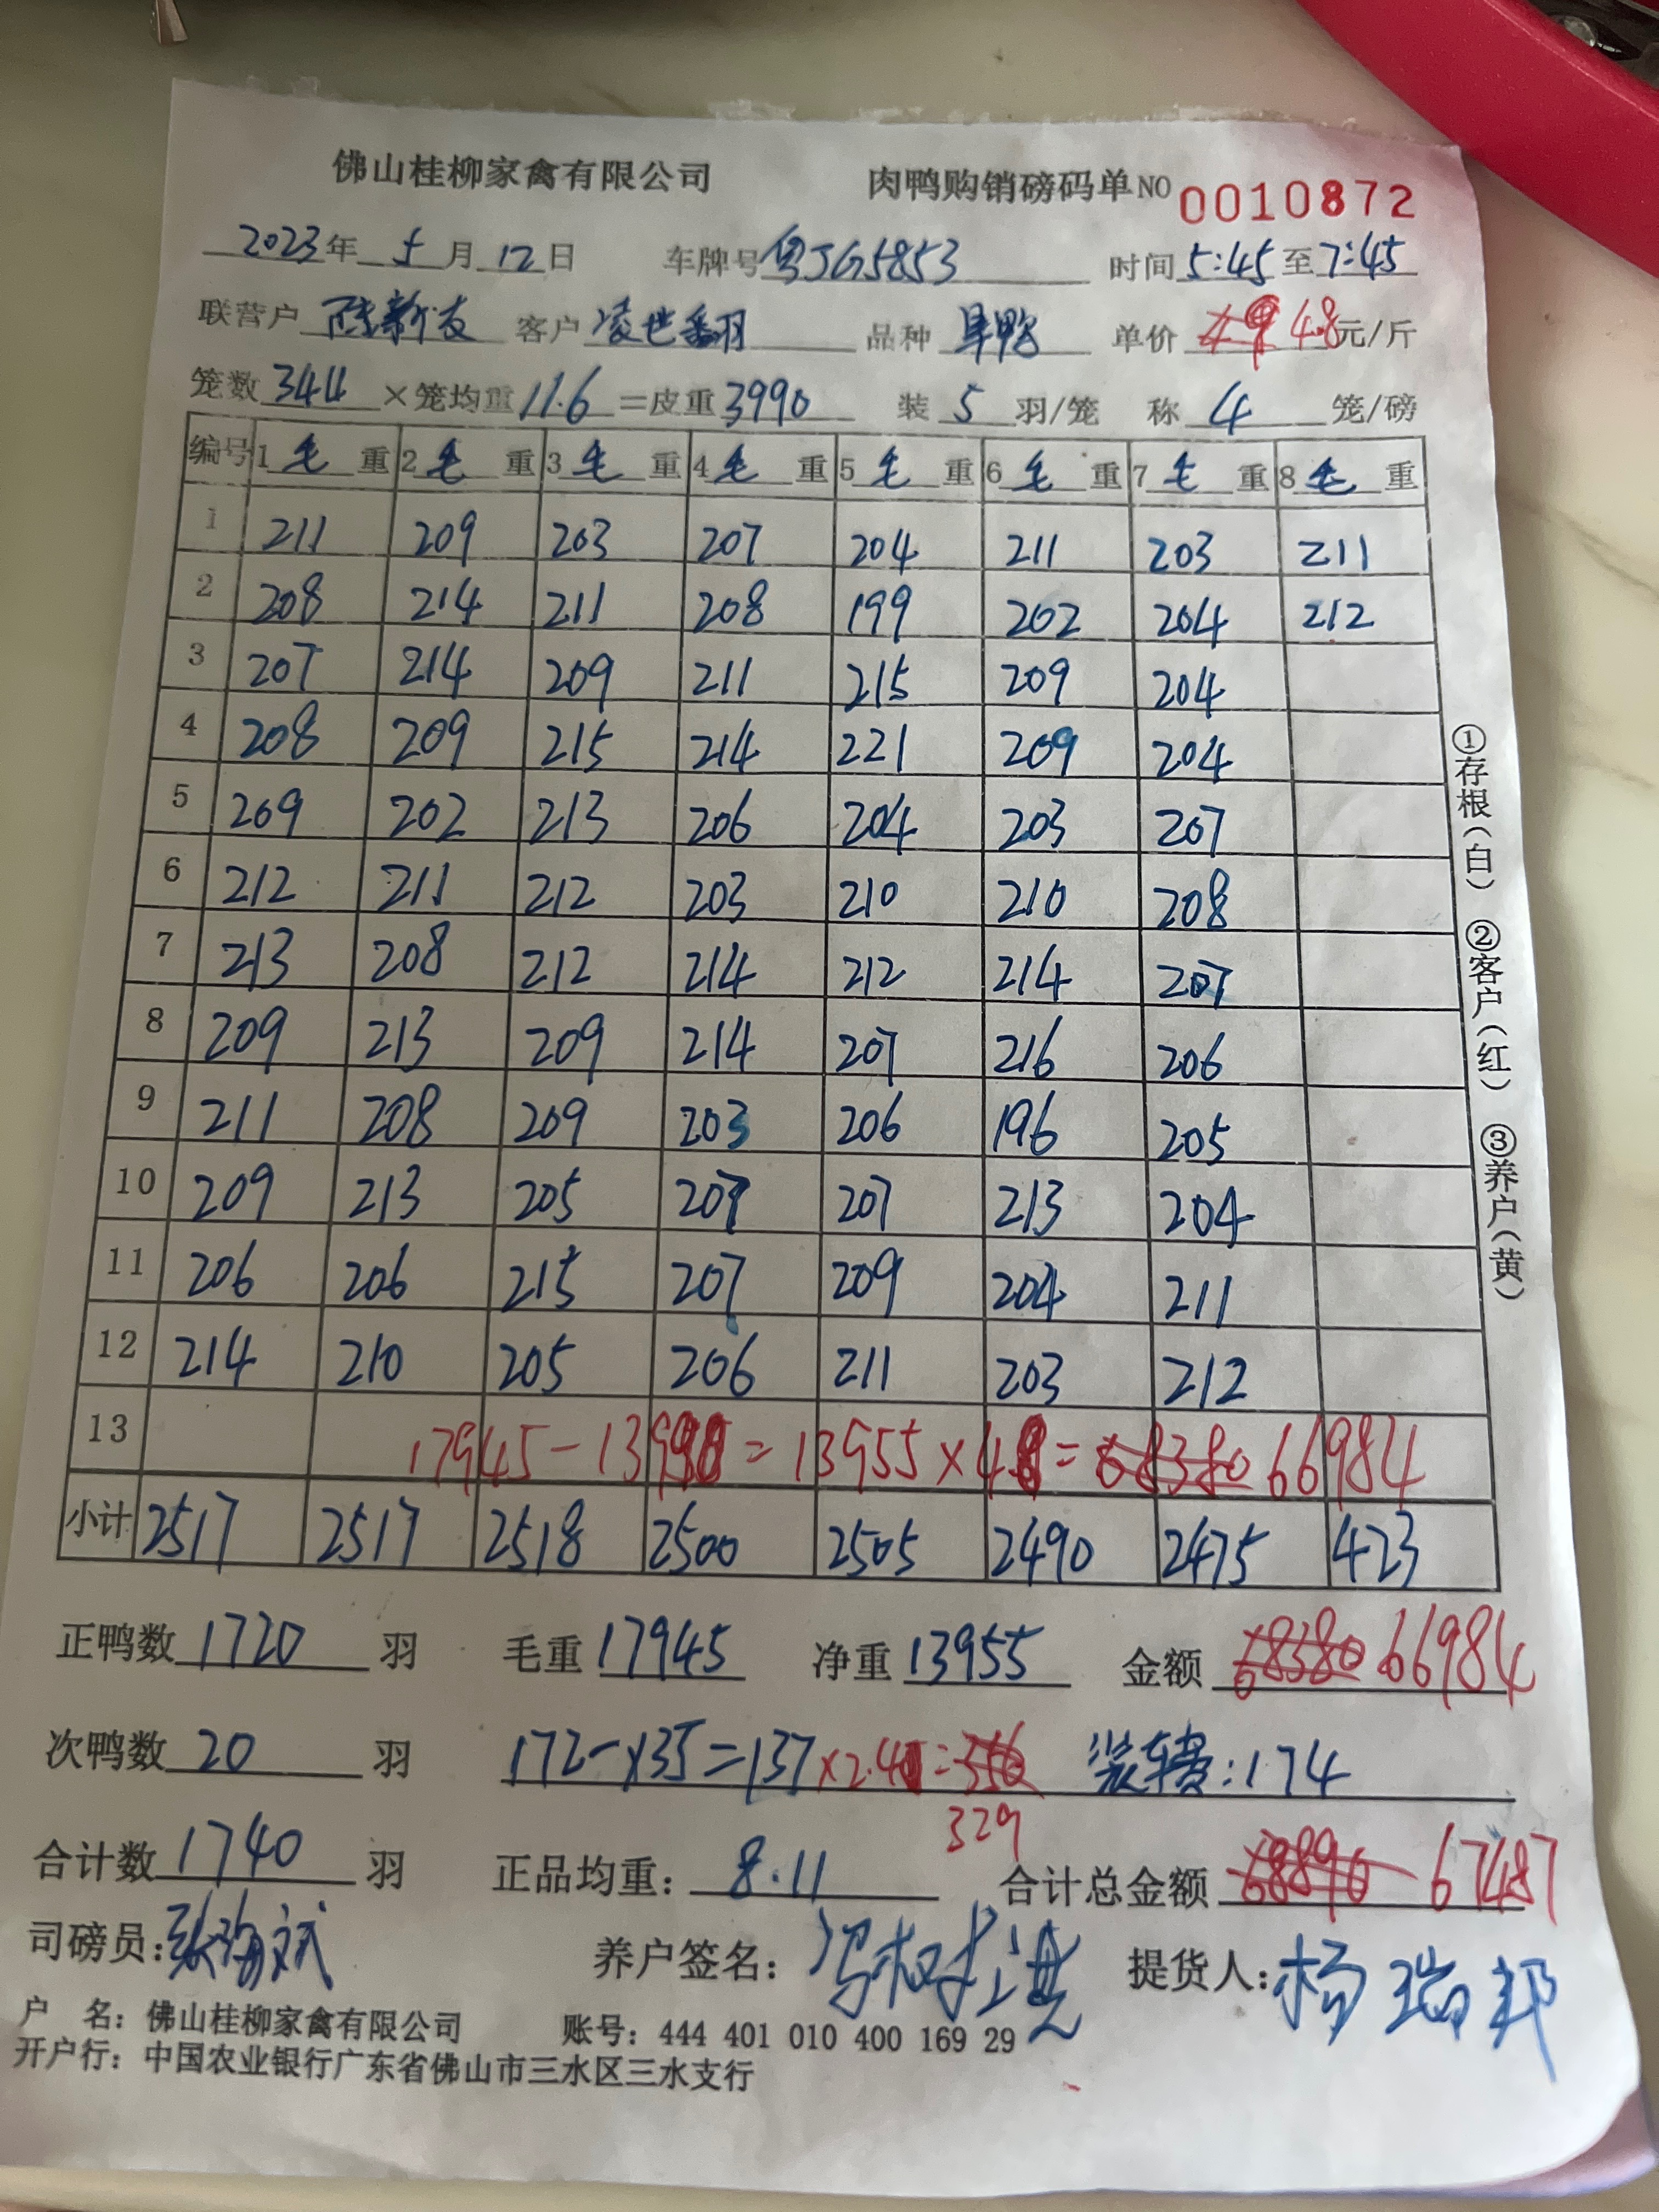 佛山桂柳家禽有限公司 肉鸭购销磅码单NO 0010872
2023年 5月12日 车牌号 粤JG5853 时间 5:45至7:45
联营户 陈新友 客户 凌世翻羽 品种 旱鸭 单价 4.8元/斤
笼数344×笼均重11.6=皮重3990 装5羽/笼 称4笼/磅
编号 1毛重 2毛重 3毛重 4毛重 5毛重 6毛重 7毛重 8毛重
1 211 209 203 207 204 211 203 211
2 208 214 211 208 199 202 204 212
3 207 214 209 211 215 209 204
4 208 209 215 214 221 209 204
5 209 202 213 206 204 203 207
6 212 211 212 203 210 210 208
7 213 208 212 214 212 214 207
8 209 213 209 214 207 216 206
9 211 208 209 203 206 196 205
10 209 213 205 207 207 213 204
11 206 206 215 207 209 204 211
12 214 210 205 206 211 203 212
13 17945- = 13955×4.8= 68380 66984
小计 2517 2517 2518 2500 2505 2490 2475 423
正鸭数 1720 羽 毛重 17945 净重 13955 金额 68380 66984
次鸭数 20 羽 172-35=137×2.4= 装车费:174
329
合计数 1740 羽 正品均重: 8.11 合计总金额 68890 67487
司磅员:张海斌 养户签名: 提货人:杨瑞邦
户 名: 佛山桂柳家禽有限公司 账号: 444 401 010 400 169 29
开户行: 中国农业银行广东省佛山市三水区三水支行
①存根(白) ②客户(红) ③养户(黄)